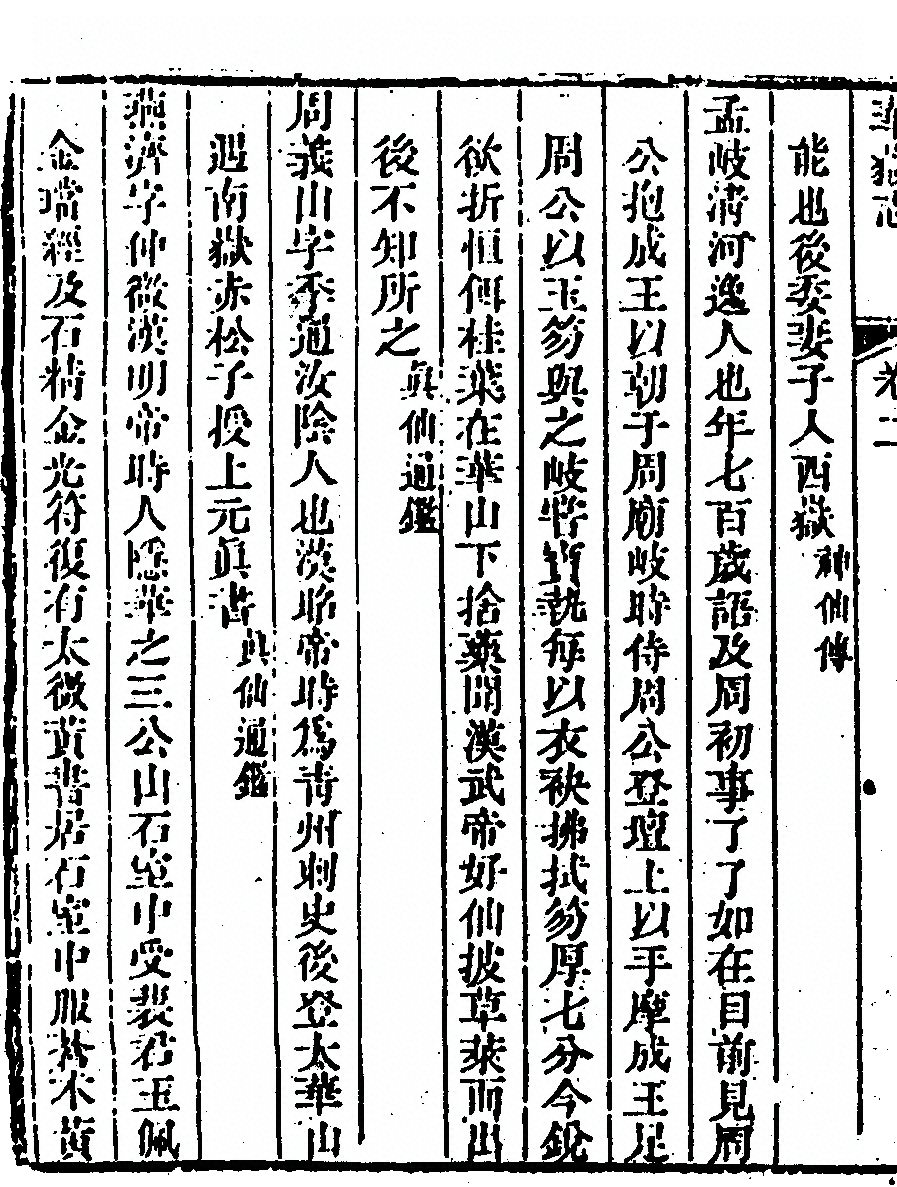 華嶽志 卷二
能也後委妻子入西嶽神仙傳
孟岐清河逸人也年七百歲語及周初事了了如在目前見周
公抱成王以朝于周廟岐時侍周公登壇上以手摩成王足
周公以玉笏與之岐嘗寶執每以衣袂拂拭笏厚七分今銳
欲折恒餌桂葉在華山下捨藥聞漢武帝好仙披草萊而出
後不知所之眞仙通鑑
周義山字季通汝陰人也漢昭帝時爲青州刺史後登太華山
遇南嶽赤松子授上元眞書眞仙通鑑
燕濟字仲微漢明帝時人隱華之三公山石室中受裴君玉佩
金璫經及石精金光符復有太微黃書居石室中服朮黃